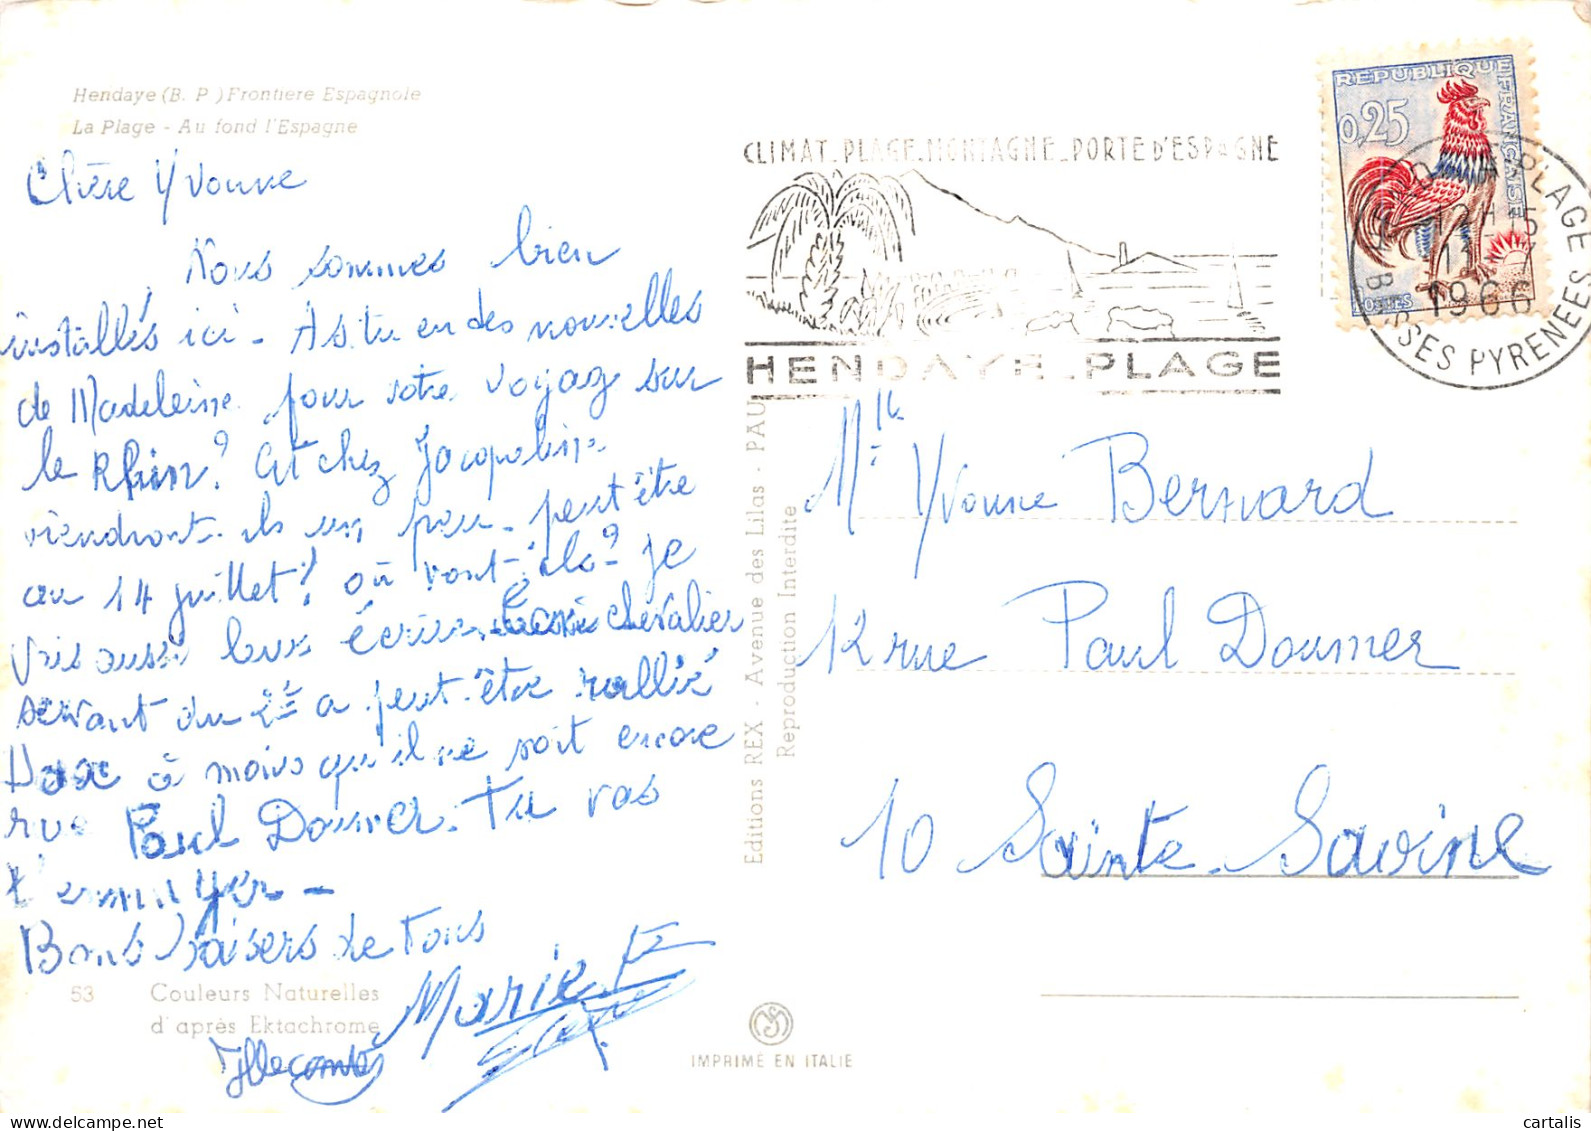 Hendaye (B. P.) Frontiere Espagnole
La Plage - Au fond l'Espagne
Chère Yvonne
Nous sommes bien
installés ici - As tu eu des nouvelles
de Madeleine pour votre voyage sur
le Rhin? Et chez Jacqueline
viendront-ils un peu peut être
au 14 juillet? où vont-ils? je
vais aussi leur écrire chevalier
servant du 2è a peut-être rallié
à moins qu'il ne soit encore
rue Paul Doumer. Tu vas
t'ennuyer -
Bons baisers de tous
Marie
53 Couleurs Naturelles
d'après Ektachrome
Editions REX - Avenue des Lilas - PAU
Reproduction Interdite
IMPRIMÉ EN ITALIE
CLIMAT_PLAGE_MONTAGNE_PORTE D'ESPAGNE
HENDAYE_PLAGE
REPUBLIQUE FRANÇAISE
0,25
POSTES
PLAGE
12H15
1966
BSSES PYRENEES
Mlle Yvonne Bernard
12 rue Paul Doumer
10 Sainte-Savine
cartalis